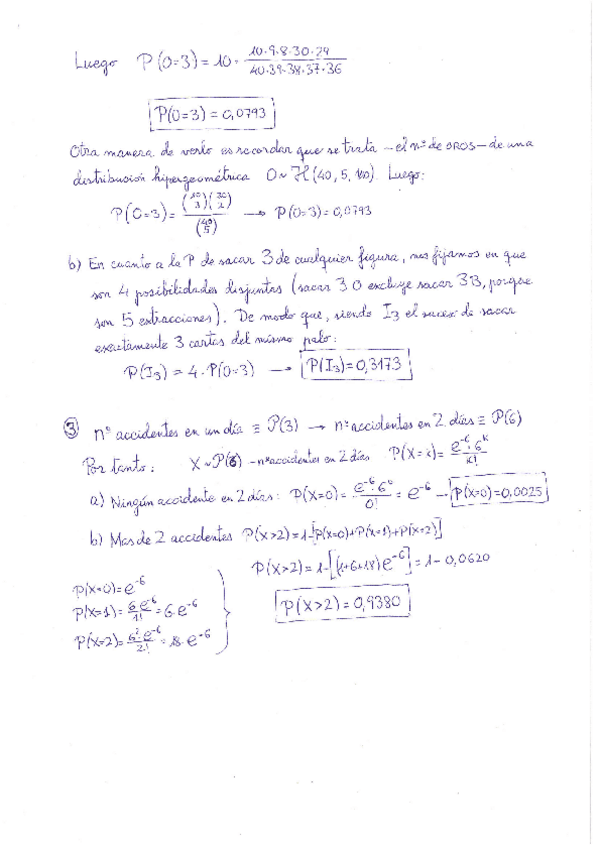 Luego P(O=3) = 10 · (10·9·8·30·29)/(40·39·38·37·36)
P(O=3) = 0,0793
Otra manera de verlo es recordar que se trata – el nº de OROS – de una
distribución hipergeométrica O ~ H(40, 5, 10). Luego:
P(O=3) = (10 3)(30 2)/(40 5) → P(O=3) = 0,0793
b) En cuanto a la P de sacar 3 de cualquier figura, nos fijamos en que
son 4 posibilidades disjuntas (sacar 3 O excluye sacar 3B, porque
son 5 extracciones). De modo que, siendo I3 el suceso de sacar
exactamente 3 cartas del mismo palo:
P(I3) = 4 · P(O=3) → P(I3) = 0,3173
3 nº accidentes en un día ≡ P(3) → nº accidentes en 2 días ≡ P(6)
Por tanto: X ~ P(6) – nº accidentes en 2 días P(X=k) = e^-6 · 6^k / k!
a) Ningún accidente en 2 días: P(X=0) = e^-6 6^0 / 0! = e^-6 → P(X=0) = 0,0025
b) Mas de 2 accidentes P(X>2) = 1-[P(X=0)+P(X=1)+P(X=2)]
P(X>2) = 1-[(1+6+18)e^-6] = 1 - 0,0620
P(X=0) = e^-6
P(X=1) = 6 e^-6 / 1! = 6·e^-6
P(X>2) = 0,9380
P(X=2) = 6^2·e^-6 / 2! = · e^-6